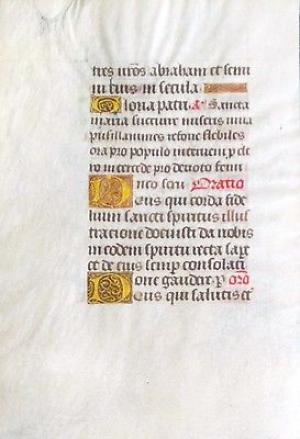 tres nr̄os abraham et semi
ni eius in secula
Gloria patri A Sancta
maria succurre miseris iuua
pusillanimes refoue flebiles
ora pro populo interueni p cle
ro intercede pro deuoto femi
neo sexu Oratio
Deus qui corda fide
lium sancti spiritus illus
tratione docuisti da nobis
in eodem spiritu recta sape
et de eius semp consolaci
one gaudere p oro
Deus qui salutis et